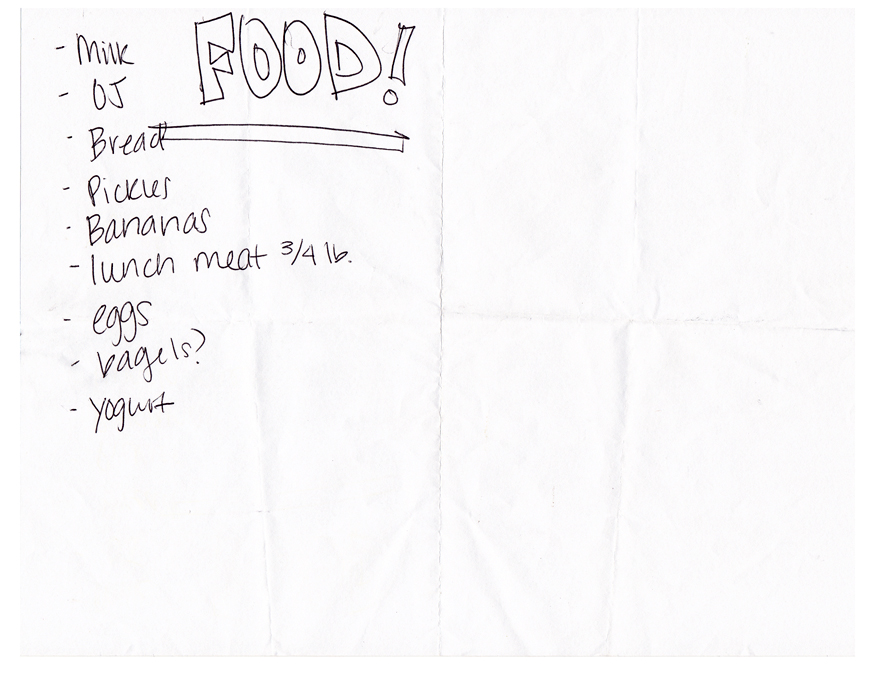 FOOD!
- Milk
- OJ
- Bread
- Pickles
- Bananas
- lunch meat 3/4 lb.
- eggs
- bagels?
- yogurt